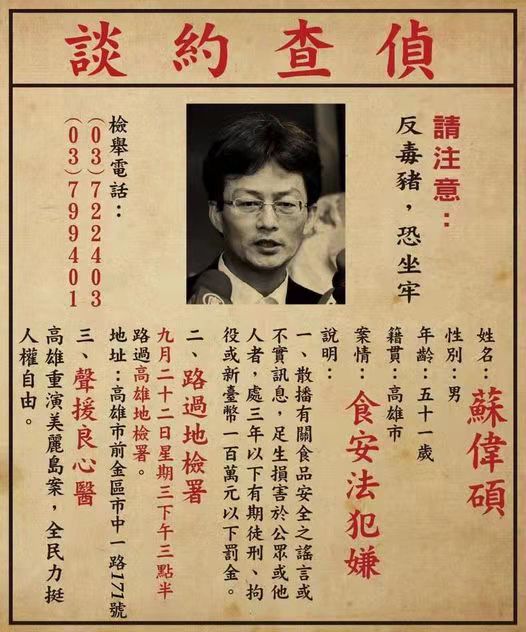 偵查約談
請注意：
反毒豬，恐坐牢
檢舉電話：
(03)722403
(03)799401
姓名：蘇偉碩
性別：男
年齡：五十一歲
籍貫：高雄市
案情：食安法犯嫌
說明：
一、散播有關食品安全之謠言或
不實訊息，足生損害於公眾或他
人者，處三年以下有期徒刑、拘
役或新臺幣一百萬元以下罰金。
二、路過地檢署
九月二十二日星期三下午三點半
路過高雄地檢署。
地址：高雄市前金區市中一路171號
三、聲援良心醫
高雄重演美麗島案，全民力挺
人權自由。